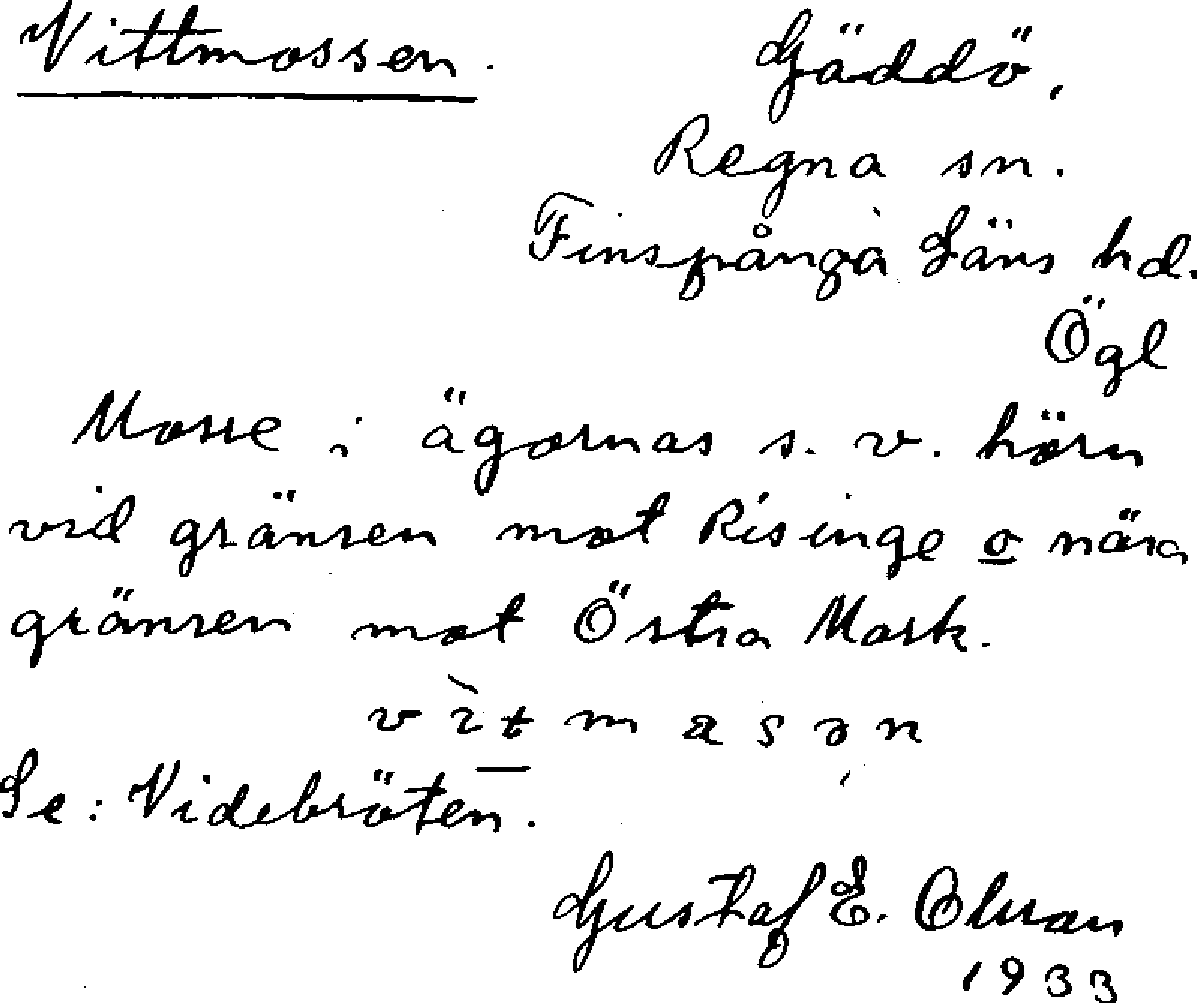 Vittmossen.
Gäddö,
Regna sn.
Finspånga Läns hd.
Ögl
Mosse i ägornas s. v. hörn
vid gränsen mot Risinge o nära
gränsen mot Östra Mark.
v ì t m a s ə n
Se: Videbråten.
Gustaf E. Olsson
1933